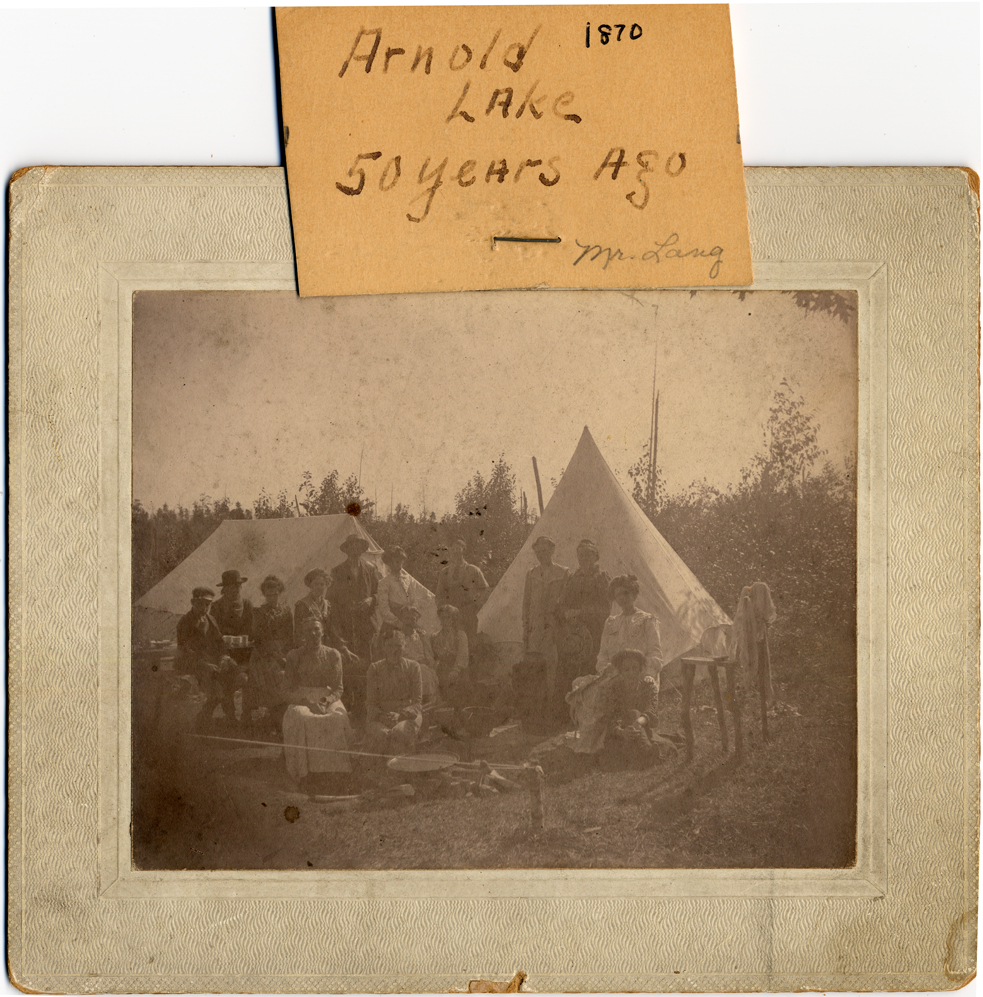 Arnold 1870
LAke
50 years Ago
Mr. Lang